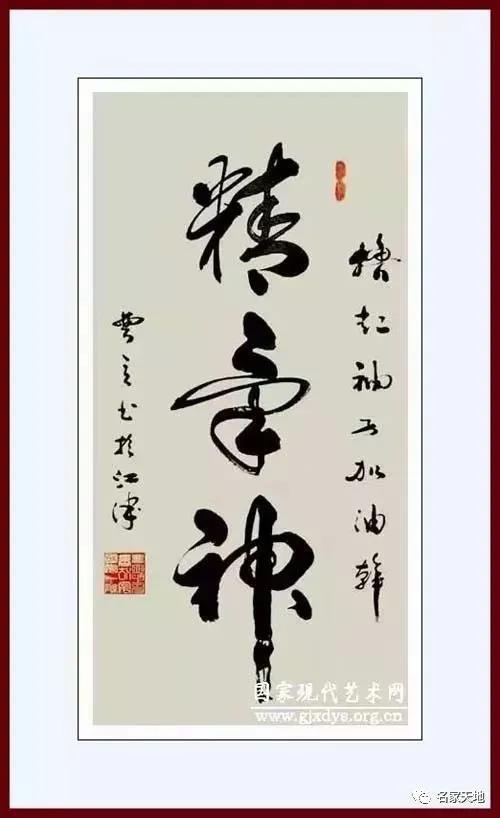 擼起袖子加油幹
精氣神
雲书於江津
國家现代艺术网
www.gjxdys.org.cn
名家天地